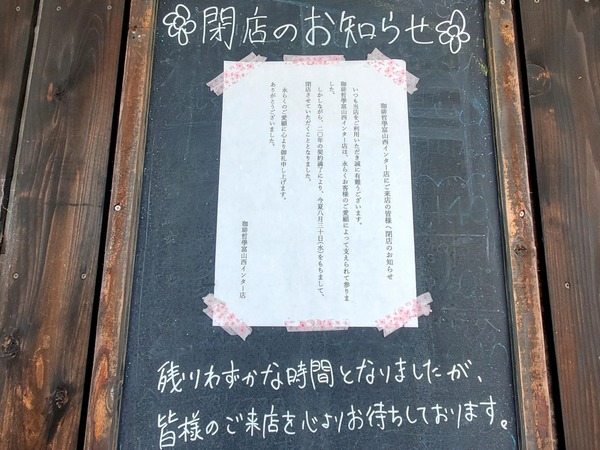 閉店のお知らせ
珈琲哲學富山西インター店にご来店の皆様へ閉店のお知らせ
いつも当店をご利用いただき誠に有難うございます。
珈琲哲學富山西インター店は、永らくお客様のご愛顧によって支えられて参りま
した。
しかしながら、二〇年の契約満了により、今夏八月三十日(水)をもちまして、
閉店させていただくこととなりました。
永らくのご愛顧に心より御礼申し上げます。
ありがとうございました。
珈琲哲學富山西インター店
残りわずかな時間となりましたが、
皆様のご来店を心よりお待ちしております。